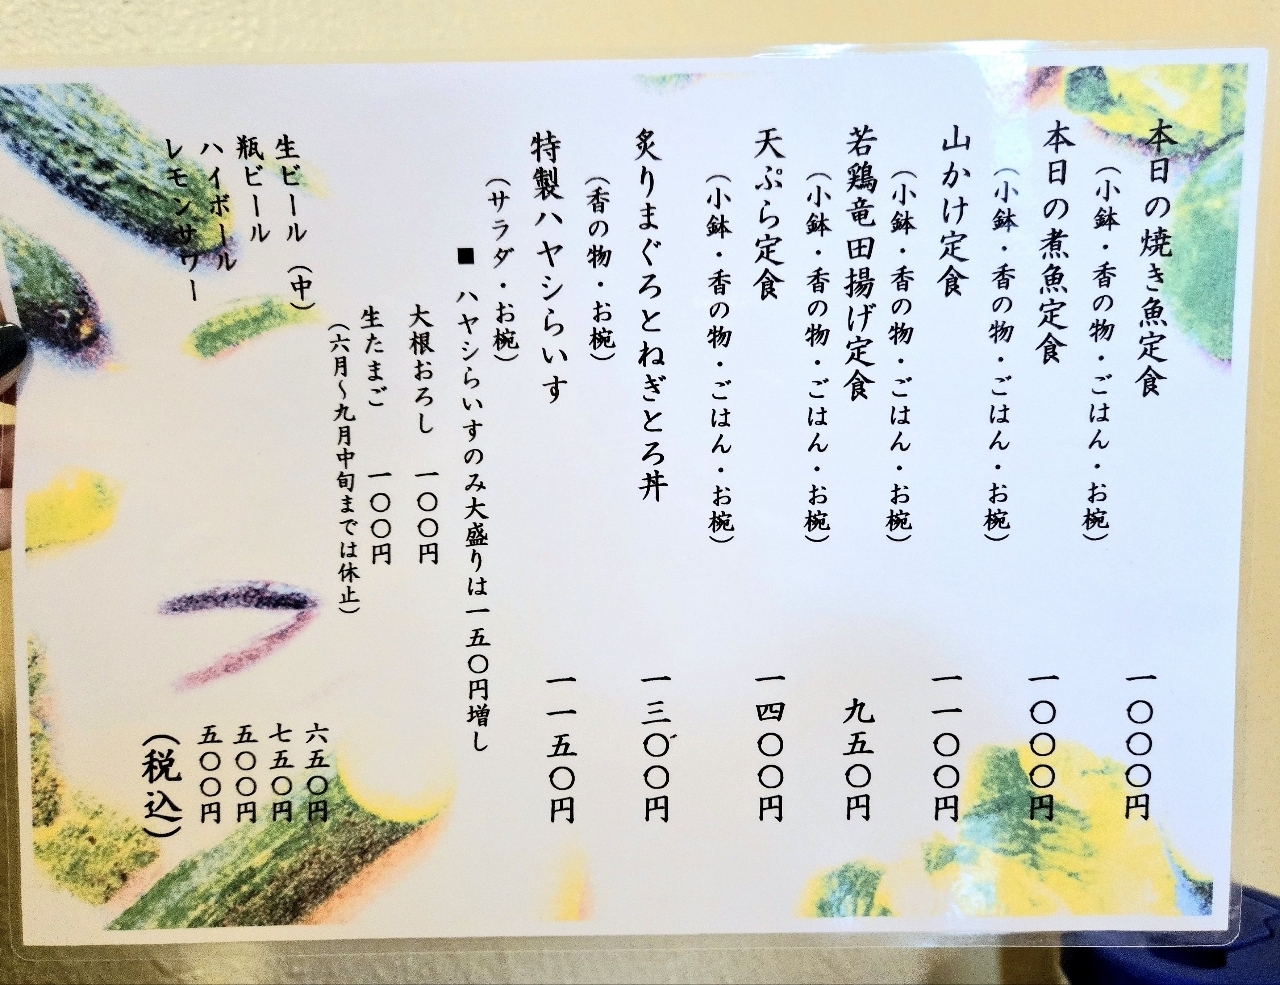 本日の焼き魚定食 一〇〇〇円
（小鉢・香の物・ごはん・お椀）
本日の煮魚定食 一〇〇〇円
（小鉢・香の物・ごはん・お椀）
山かけ定食 一一〇〇円
（小鉢・香の物・ごはん・お椀）
若鶏竜田揚げ定食 九五〇円
（小鉢・香の物・ごはん・お椀）
天ぷら定食 一四〇〇円
（小鉢・香の物・ごはん・お椀）
炙りまぐろとねぎとろ丼 一三〇〇円
（香の物・お椀）
特製ハヤシらいす 一一五〇円
（サラダ・お椀）
■ ハヤシらいすのみ大盛りは一五〇円増し
大根おろし 一〇〇円
生たまご 一〇〇円
（六月～九月中旬までは休止）
生ビール（中） 六五〇円
瓶ビール 七五〇円
ハイボール 五〇〇円
レモンサワー 五〇〇円
（税込）